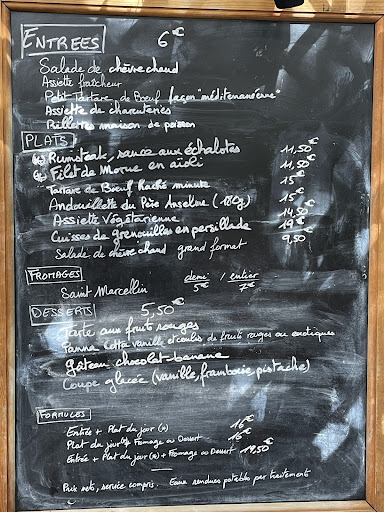 ENTREES 6€
Salade de chèvre chaud
Assiette fraîcheur
Petit Tartare de Boeuf façon "méditeranéenne"
Assiette de charcuteries
Rillettes maison de poisson
PLATS
(*) Rumsteak, sauce aux échalotes 11,50€
(*) Filet de Morue en aïoli 11,50€
Tartare de Boeuf Haché minute 15€
Andouillette du Père Anselme (180g) 15€
Assiette Végétarienne 14,50€
Cuisses de grenouilles en persillade 19€
Salade de chèvre chaud grand format 9,50€
FROMAGES demi / entier
Saint Marcellin 5€ 7€
DESSERTS 5,50€
Tarte aux fruits rouges
Panna Cotta vanille et coulis de fruits rouges ou exotiques
Gâteau chocolat-banane
Coupe glacée (vanille, framboise, pistache)
FORMULES
Entrée + Plat du jour (*) 16€
Plat du jour (*) + Fromage ou Dessert 16€
Entrée + Plat du jour (*) + Fromage ou Dessert 19,50€
Prix nets, service compris. Eaux rendues potables par traitements